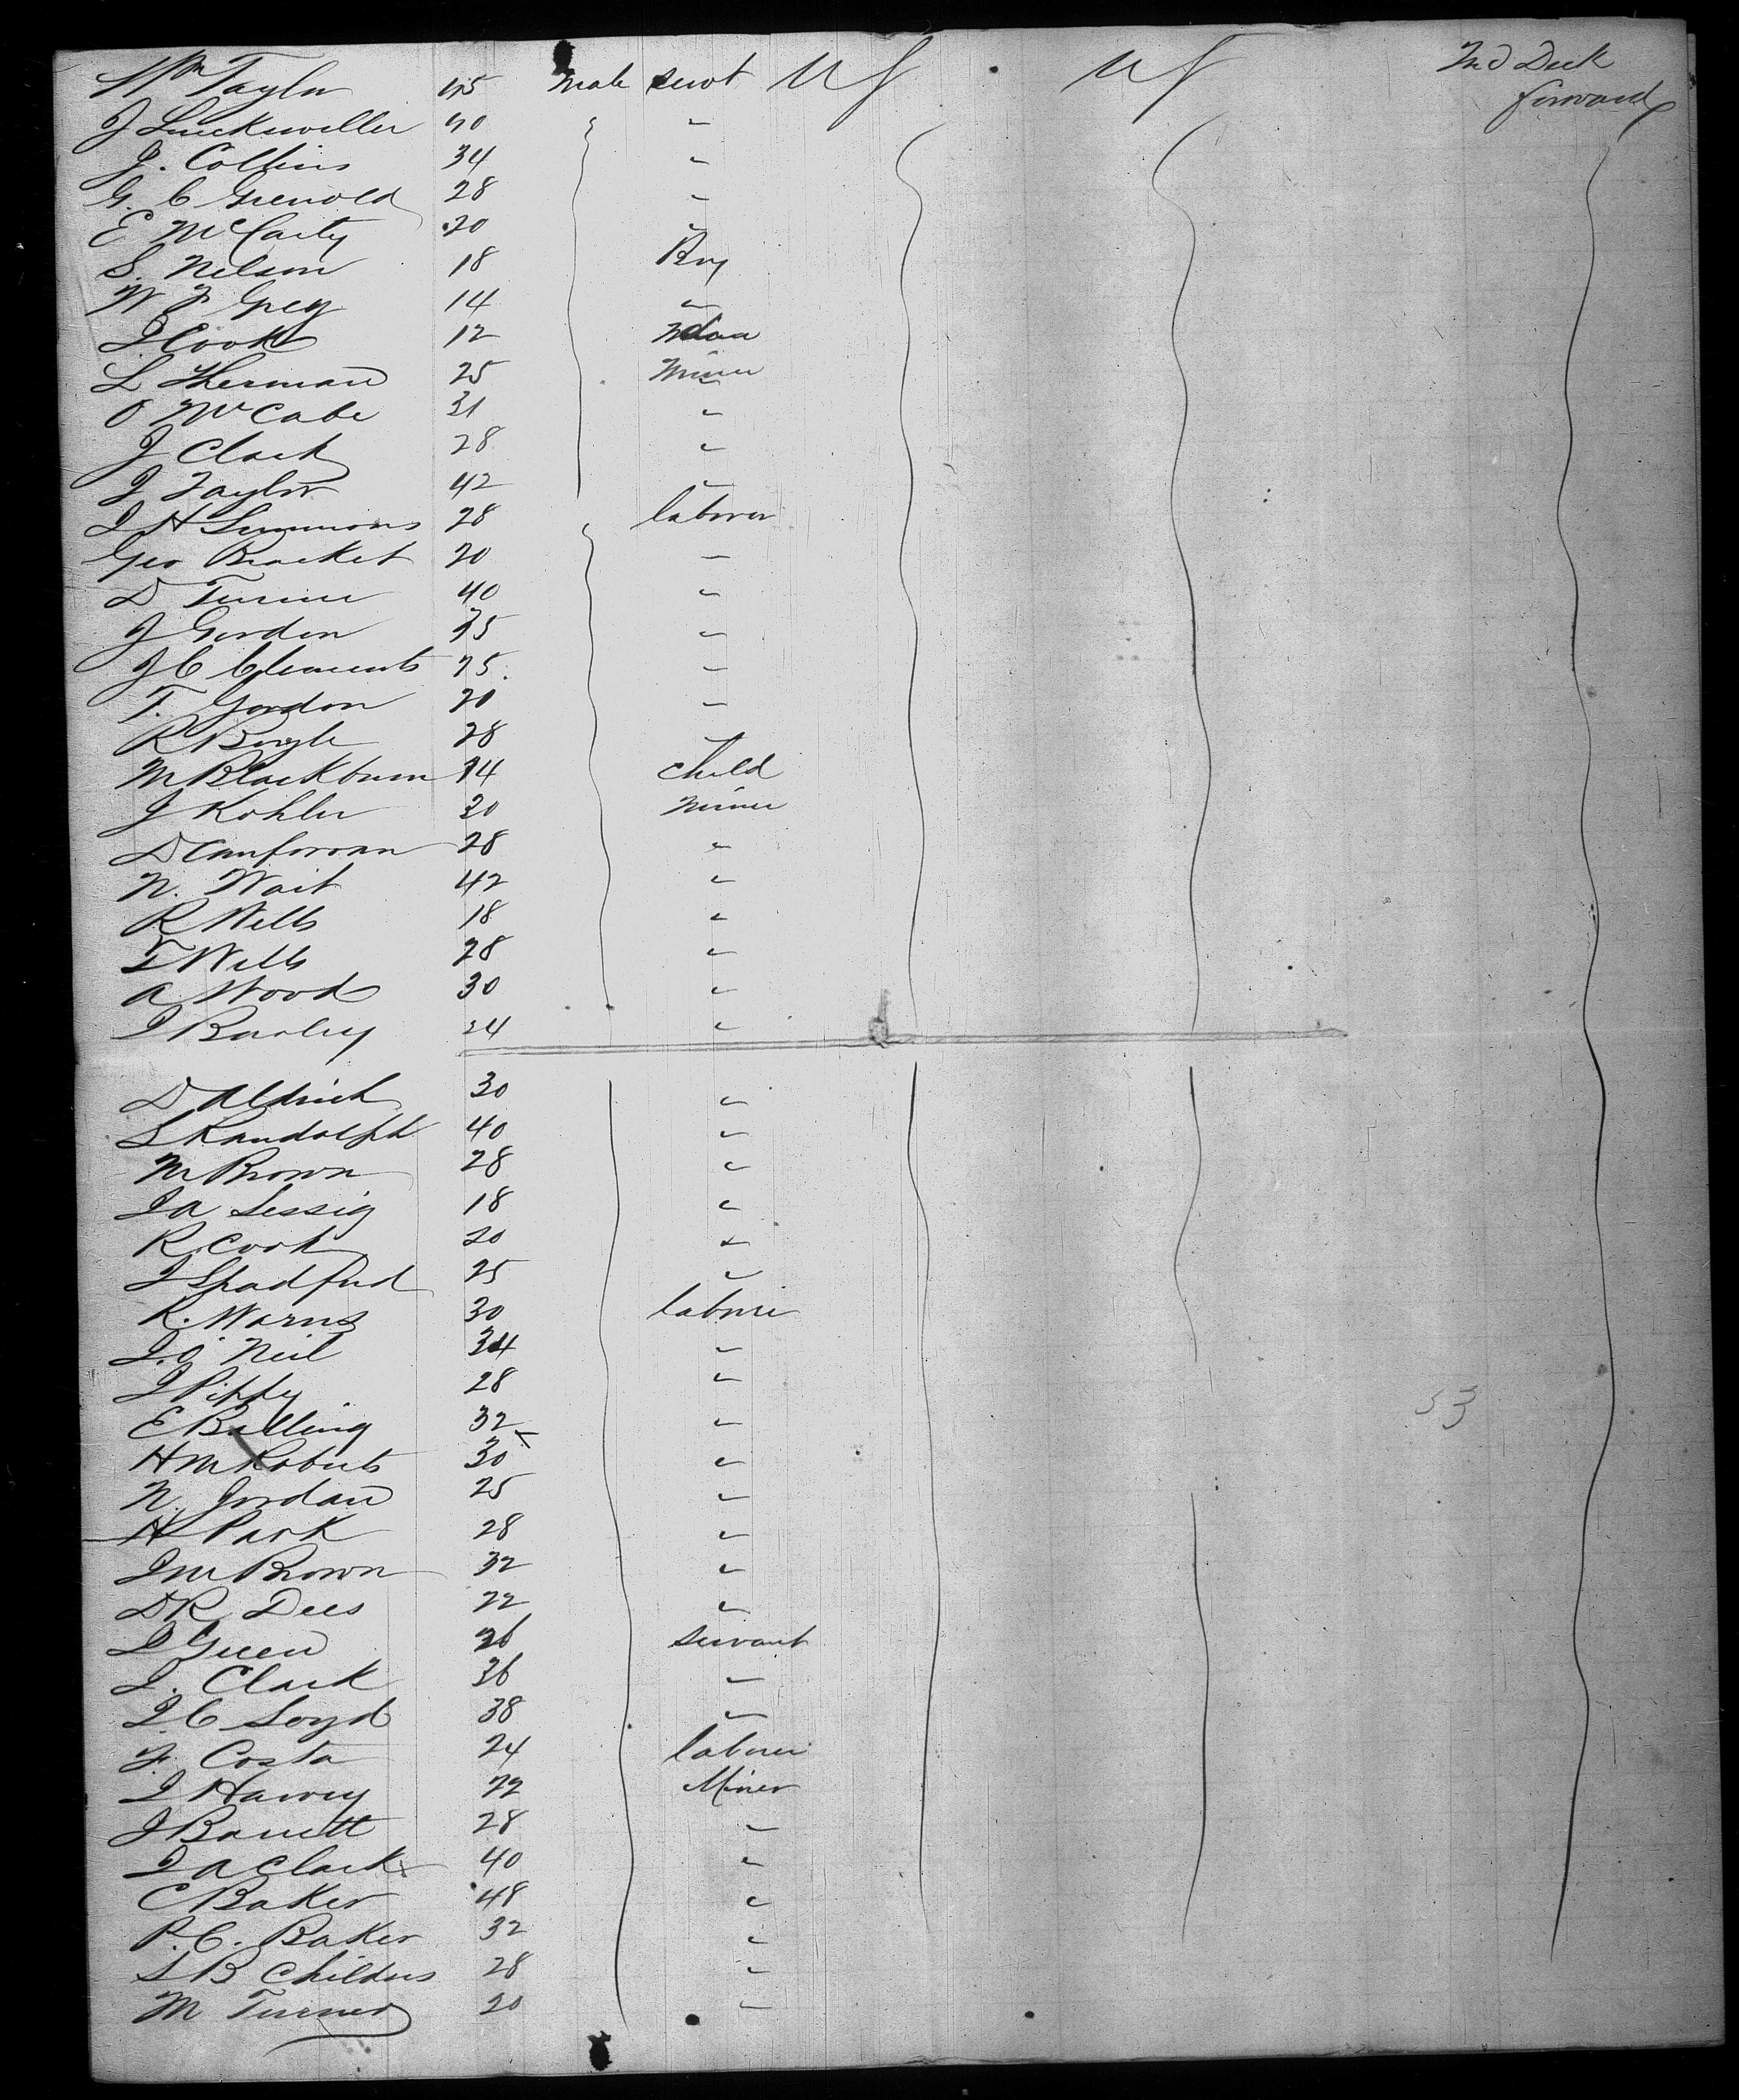 Wm Taylor 45 Male servt US US 2nd Deck
forward
J 40 "
J. Collins 34 "
G. C Grewold 28 "
E McCarty 20 "
S. Nelson 18 Boy
W F Grey 14 "
J Cook 12
L Sherman 25 Miner
O McCabe 31 "
J Clark 28 "
J Taylor 42 "
J H Simmons 28 laborer
Geo Bracket 20 "
D Turner 40 "
J Gordon 35 "
J C Clements 25 "
T. Gordon 20 "
R Boyle 28 "
M Blackburn 14 child
J Kohler 20 Miner
D Canforran 28 "
N. Wait 42 "
R Wells 18 "
T Wells 28 "
A Wood 30 "
J Barley 24 "
D Aldrich 30 "
L Randolph 40 "
M Brown 28 "
J A Lessig 18 "
R Cook 20 "
J Spadford 25 "
R. Warns 30 laborer
J. O'Neil 34 "
J Pippy 28 "
E Belling 32 "
H M Roberts 30 "
N. Jordan 25 "
H Park 28 "
J M Brown 32 "
D R Dees 22 "
J Green 26 servant
J. Clark 36 "
J. C Loyd 38 "
F. Costa 24 laborer
J Harvey 22 Miner
J Barrett 28 "
J A Clark 40 "
C Baker 48 "
P. C. Baker 32 "
S B Childers 28 "
M Turner 20 "
53